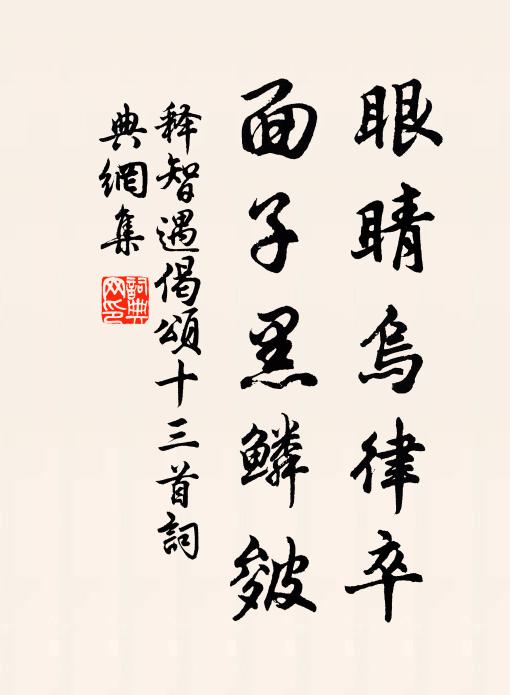 眼睛烏律卒
面子黑鱗皴
释智遇偈頌十三首詞
典網集
詞典
网印